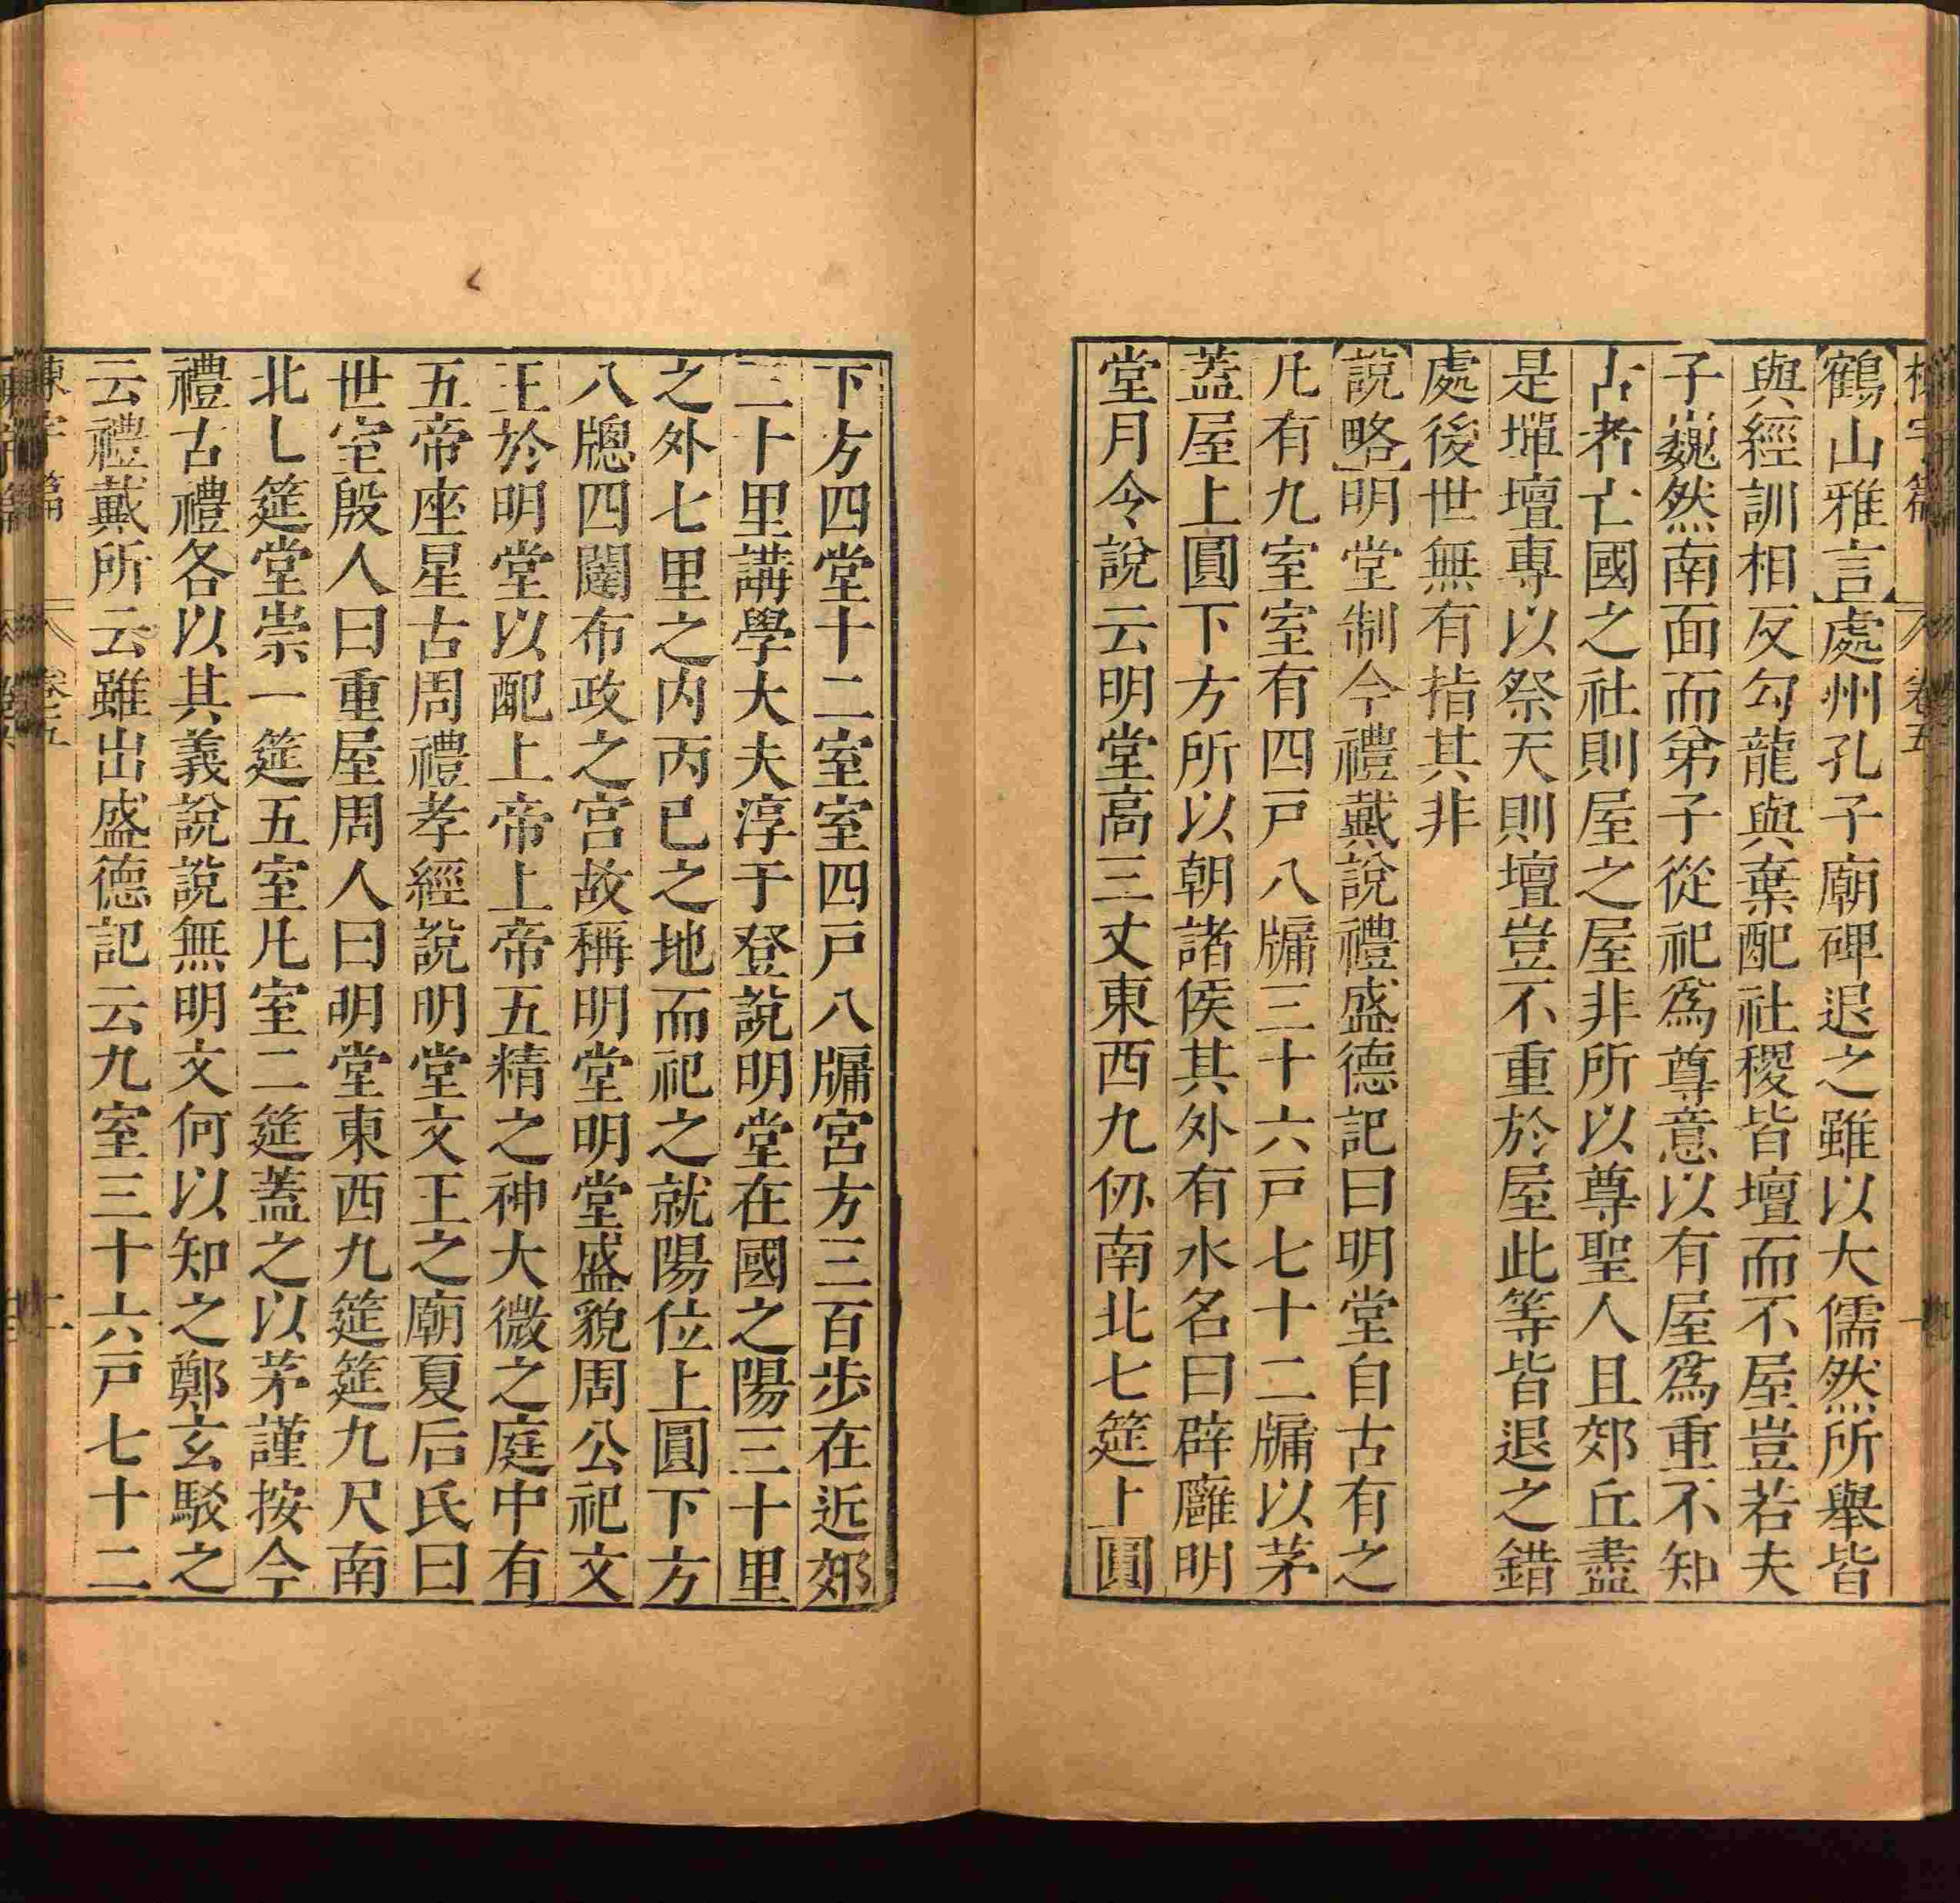 鶴山雅言處州孔子廟碑退之雖以大儒然所舉皆
與經訓相反勾龍與棄配社稷皆壇而不屋豈若夫
子巍然南面而弟子從祀爲尊意以有屋爲重不知
古者亡國之社則屋之屋非所以尊聖人且郊丘盡
是墠壇專以祭天則壇豈不重於屋此等皆退之錯
處後世無有指其非
說略明堂制今禮戴說禮盛德記曰明堂自古有之
凡有九室室有四戸八牖三十六戸七十二牖以茅
蓋屋上圓下方所以朝諸侯其外有水名曰辟廱明
堂月令說云明堂高三丈東西九仞南北七筵上圓
下方四堂十二室室四戸八牖宮方三百步在近郊
三十里講學大夫淳于登說明堂在國之陽三十里
之外七里之内丙已之地而祀之就陽位上圓下方
八牕四闥布政之宮故稱明堂明堂盛貌周公祀文
王於明堂以配上帝上帝五精之神大微之庭中有
五帝座星古周禮孝經說明堂文王之廟夏后氏曰
世室殷人曰重屋周人曰明堂東西九筵筵九尺南
北七筵堂崇一筵五室凡室二筵蓋之以茅謹按今
禮古禮各以其義說說無明文何以知之鄭玄駁之
云禮戴所云雖出盛德記云九室三十六戸七十二